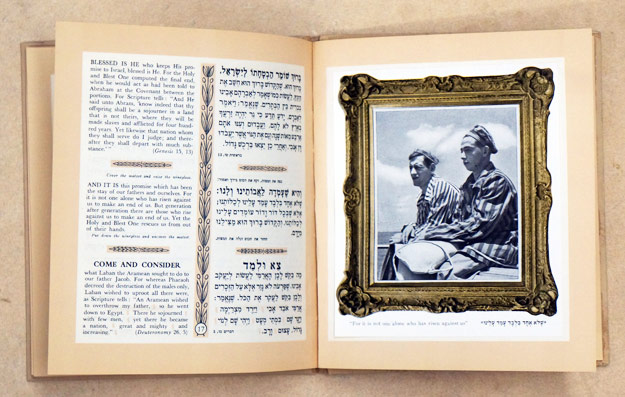 BLESSED IS HE who keeps His pro-
mise to Israel, blessed is He. For the Holy
and Blest One computed the final end,
when he would act as had been told to
Abraham at the Covenant between the
portions. For Scripture tells : "And He
said unto Abram, 'know indeed that thy
offspring shall be a sojourner in a land
that is not theirs, where they will be
made slaves and afflicted for four hund-
red years. Yet likewise that nation whom
they shall serve do I judge; and there-
after they shall depart with much sub-
stance.'" (Genesis 15, 13)
Cover the matsot and raise the wineglass.
AND IT IS this promise which has been
the stay of our fathers and ourselves. For
it is not one alone who has risen against
us to make an end of us. But generation
after generation there are those who rise
against us to make an end of us. Yet the
Holy and Blest One rescues us from out
of their hands.
Put down the wineglass and uncover the matsot
COME AND CONSIDER
what Laban the Aramean sought to do to
our father Jacob. For whereas Pharaoh
decreed the destruction of the males only,
Laban wished to uproot all there were,
as Scripture tells : "An Aramean wished
to overthrow my father, so he went
down to Egypt. There he sojourned
with few men, yet there he became
a nation, great and mighty and
increasing." (Deuteronomy 26, 5)
17
בָּרוּךְ שׁוֹמֵר הַבְטָחָתוֹ לְיִשְׂרָאֵל,
בָּרוּךְ הוּא, שֶׁהַקָּדוֹשׁ בָּרוּךְ הוּא חִשַּׁב אֶת
הַקֵּץ לַעֲשׂוֹת כְּמוֹ שֶׁאָמַר לְאַבְרָהָם אָבִינוּ
בִּבְרִית בֵּין הַבְּתָרִים, שֶׁנֶּאֱמַר: וַיֹּאמֶר
לְאַבְרָם, יָדֹעַ תֵּדַע כִּי גֵר יִהְיֶה זַרְעֲךָ
בְּאֶרֶץ לֹא לָהֶם, וַעֲבָדוּם וְעִנּוּ אֹתָם
אַרְבַּע מֵאוֹת שָׁנָה וְגַם אֶת הַגּוֹי אֲשֶׁר יַעֲבֹדוּ
דָּן אָנֹכִי, וְאַחֲרֵי כֵן יֵצְאוּ בִּרְכֻשׁ גָּדוֹל.
וְהִיא שֶׁעָמְדָה לַאֲבוֹתֵינוּ וְלָנוּ:
שֶׁלֹּא אֶחָד בִּלְבָד עָמַד עָלֵינוּ לְכַלּוֹתֵנוּ,
אֶלָּא שֶׁבְּכָל דּוֹר וָדוֹר עוֹמְדִים עָלֵינוּ
לְכַלּוֹתֵנוּ, וְהַקָּדוֹשׁ בָּרוּךְ הוּא מַצִּילֵנוּ
מִיָּדָם.
צֵא וּלְמַד
מַה בִּקֵּשׁ לָבָן הָאֲרַמִּי לַעֲשׂוֹת לְיַעֲקֹב
אָבִינוּ, שֶׁפַּרְעֹה לֹא גָזַר אֶלָּא עַל הַזְּכָרִים
וְלָבָן בִּקֵּשׁ לַעֲקֹר אֶת הַכֹּל, שֶׁנֶּאֱמַר:
אֲרַמִּי אֹבֵד אָבִי וַיֵּרֶד מִצְרַיְמָה
וַיָּגָר שָׁם בִּמְתֵי מְעָט וַיְהִי שָׁם לְגוֹי
גָּדוֹל, עָצוּם וָרָב.
"For it is not one alone who has risen against us"
"שֶׁלֹּא אֶחָד בִּלְבָד עָמַד עָלֵינוּ"